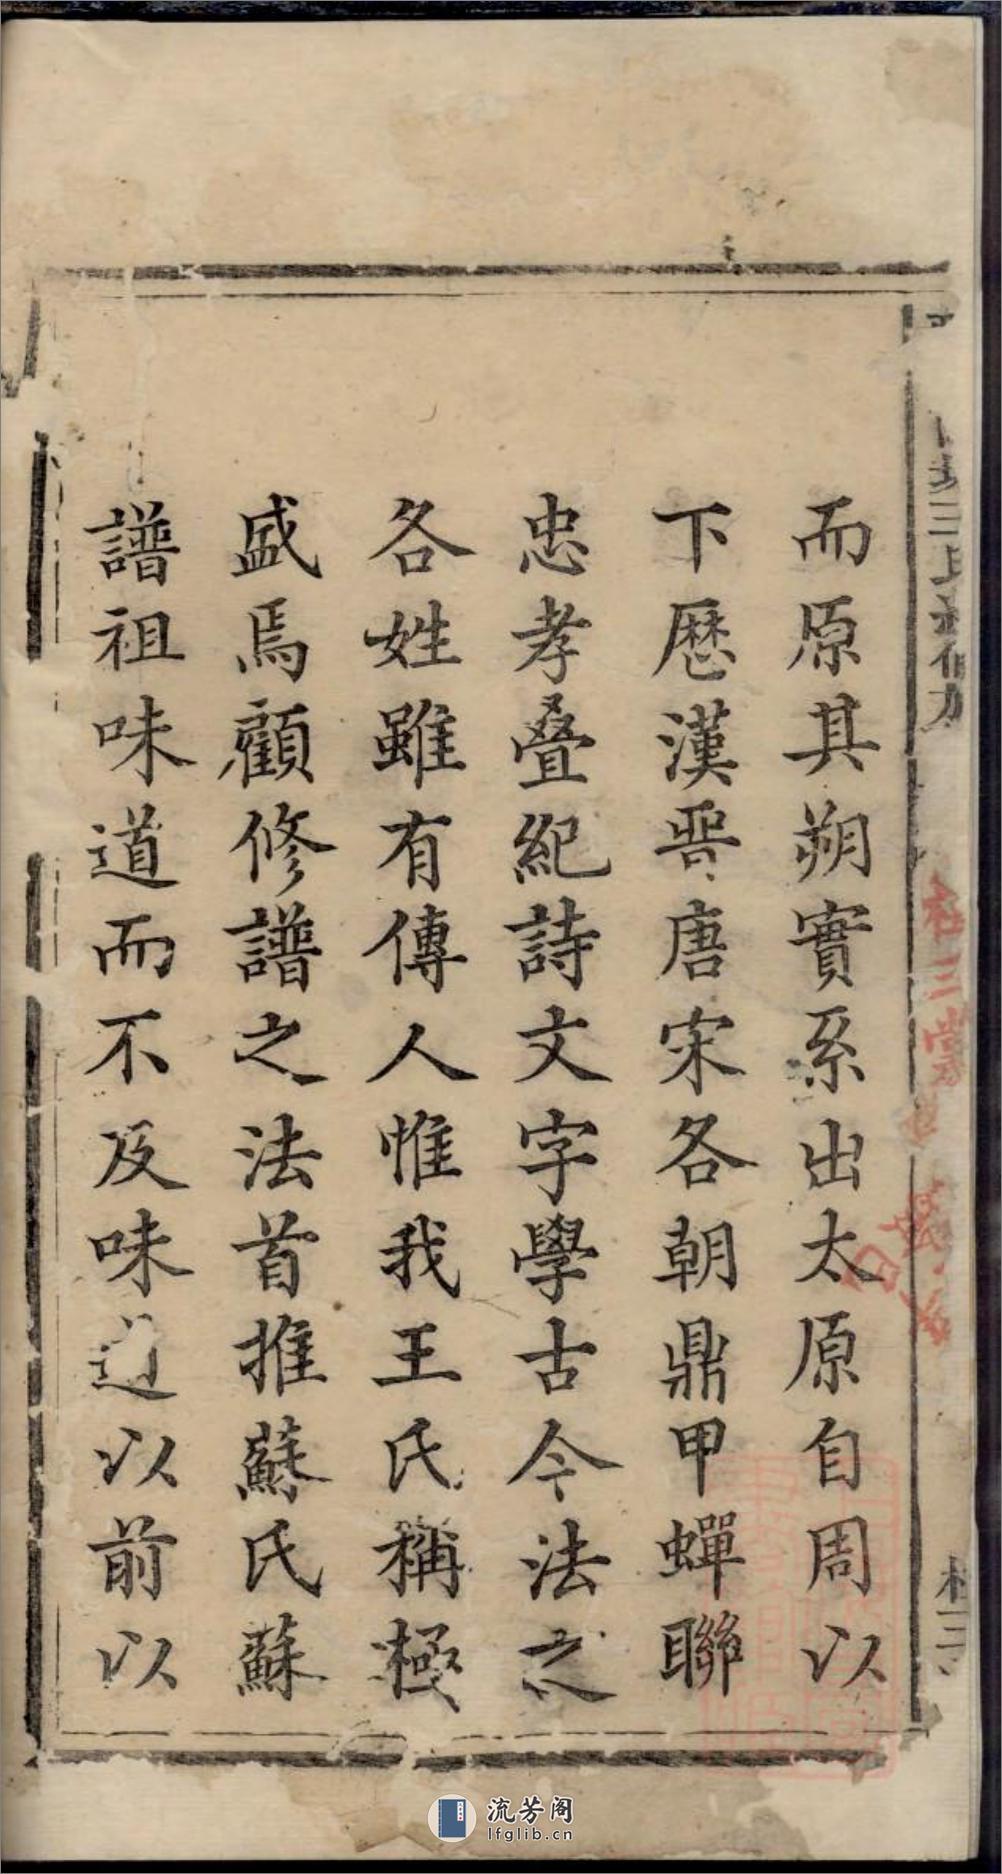 而原其朔實系出太原自周以
下歷漢晋唐宋各朝鼎甲蟬聯
忠孝叠紀詩文字學古今法之
各姓雖有傳人惟我王氏稱極
盛焉顧修譜之法首推蘇氏蘇
譜祖味道而不及味道以前以
流芳阁
lfglib.cn